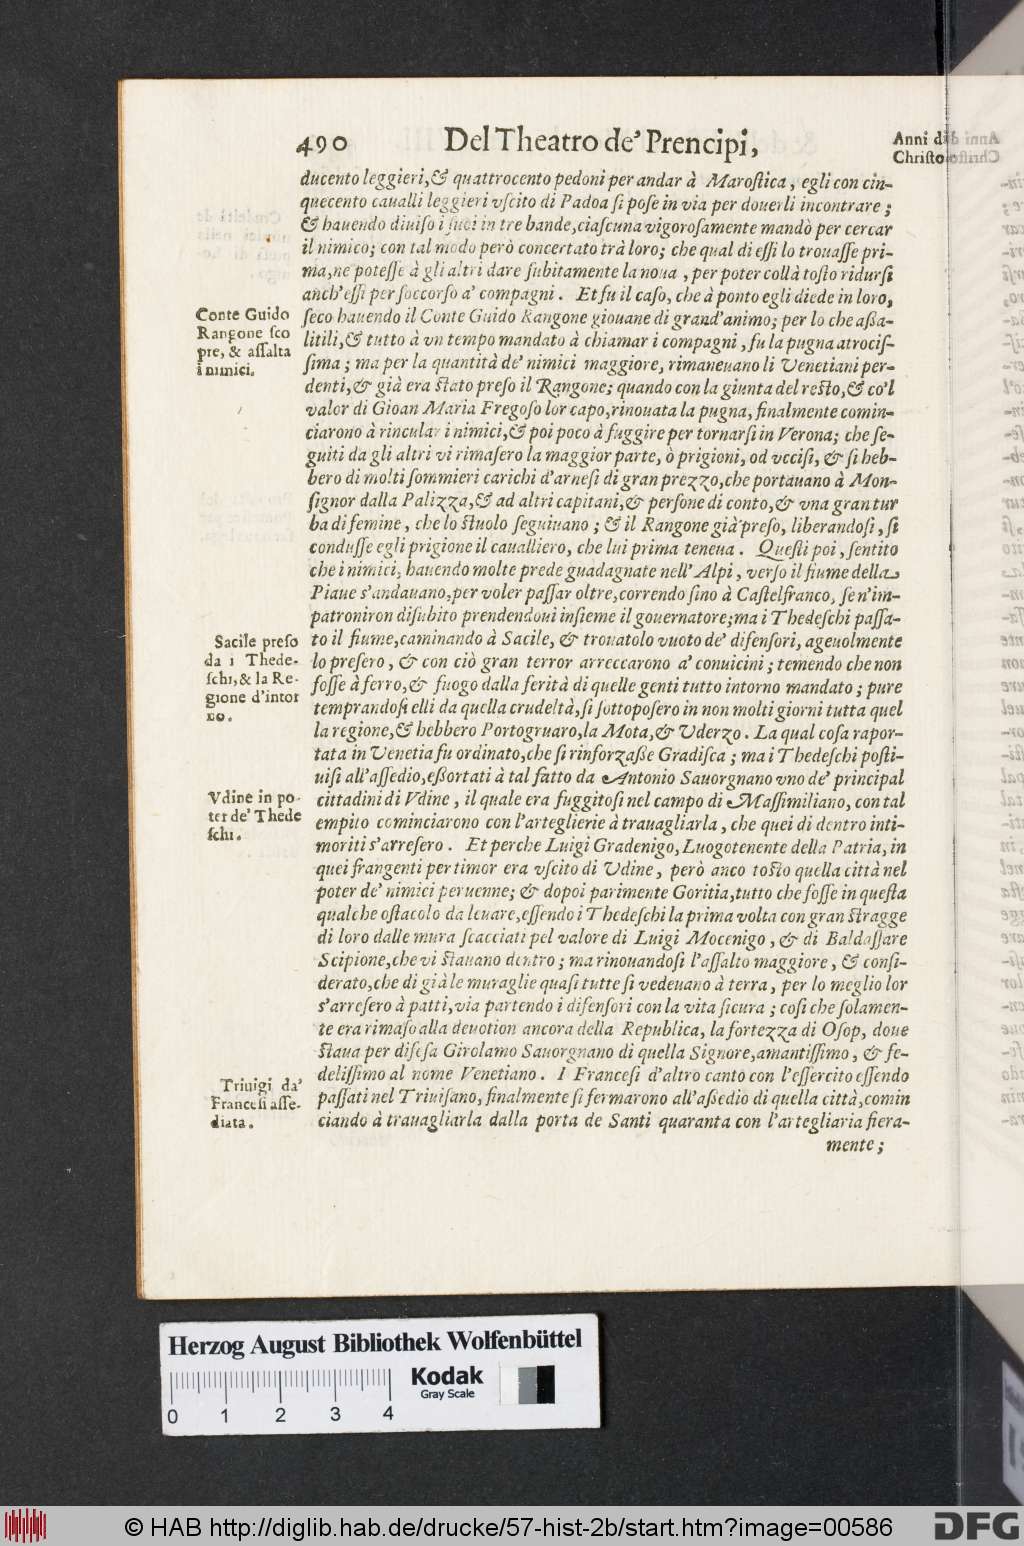 490 Del Theatro de' Prencipi,
Anni di
Christo
ducento leggieri, & quattrocento pedoni per andar à Maroſtica, egli con cin-
quecento caualli leggieri vſcito di Padoa ſi poſe in via per douerli incontrare;
& hauendo diuiſo i ſuoi in tre bande, ciaſcuna vigoroſamente mandò per cercar
il nimico; con tal modo però concertato trà loro; che qual di eſſi lo trouaſſe pri-
ma, ne poteſſe à gli altri dare ſubitamente la noua, per poter collà toſto ridurſi
anch'eſſi per ſoccorſo a' compagni. Et fu il caſo, che à ponto egli diede in loro,
Conte Guido
Rangone ſco
pre, & aſſalta
i nimici.
ſeco hauendo il Conte Guido Rangone giouane di grand'animo; per lo che aßa-
litili, & tutto à vn tempo mandato à chiamar i compagni, fu la pugna atrociſ-
ſima; ma per la quantità de' nimici maggiore, rimaneuano li Venetiani per-
denti, & già era ſtato preſo il Rangone; quando con la giunta del reſto, & co'l
valor di Gioan Maria Fregoſo lor capo, rinouata la pugna, finalmente comin-
ciarono à rincular i nimici, & poi poco à fuggire per tornarſi in Verona; che ſe-
guiti da gli altri vi rimaſero la maggior parte, ò prigioni, od vcciſi, & ſi heb-
bero di molti ſommieri carichi d'arneſi di gran prezzo, che portauano à Mon-
ſignor dalla Palizza, & ad altri capitani, & perſone di conto, & vna gran tur
ba di femine, che lo ſtuolo ſeguiuano; & il Rangone già preſo, liberandoſi, ſi
conduſſe egli prigione il caualliero, che lui prima teneua. Queſti poi, ſentito
che i nimici, hauendo molte prede guadagnate nell'Alpi, verſo il fiume della
Piaue s'andauano, per voler paſſar oltre, correndo ſino à Caſtelfranco, ſe n'im-
patroniron diſubito prendendoui inſieme il gouernatore; ma i Thedeſchi paſſa-
Sacile preſo
da i Thede-
ſchi, & la Re-
gione d'intor
no.
to il fiume, caminando à Sacile, & trouatolo vuoto de' difenſori, ageuolmente
lo preſero, & con ciò gran terror arreccarono a' conuicini; temendo che non
foſſe à ferro, & fuogo dalla ferità di quelle genti tutto intorno mandato; pure
temprandoſi elli da quella crudeltà, ſi ſottopoſero in non molti giorni tutta quel
la regione, & hebbero Portogruaro, la Mota, & Uderzo. La qual coſa rapor-
tata in Venetia fu ordinato, che ſi rinforzaße Gradiſca; ma i Thedeſchi poſti-
uiſi all'aſſedio, eßortati à tal fatto da Antonio Sauorgnano vno de' principal
Vdine in po-
ter de' Thede
ſchi.
cittadini di Vdine, il quale era fuggitoſi nel campo di Maſſimiliano, con tal
empito cominciarono con l'arteglierie à trauagliarla, che quei di dentro inti-
moriti s'arreſero. Et perche Luigi Gradenigo, Luogotenente della Patria, in
quei frangenti per timor era vſcito di Udine, però anco toſto quella città nel
poter de' nimici peruenne; & dopoi parimente Goritia, tutto che foſſe in queſta
qualche oſtacolo da leuare, eſſendo i Thedeſchi la prima volta con gran ſtragge
di loro dalle mura ſcacciati pel valore di Luigi Mocenigo, & di Baldaſſare
Scipione, che vi ſtauano dentro; ma rinouandoſi l'aſſalto maggiore, & conſi-
derato, che di già le muraglie quaſi tutte ſi vedeuano à terra, per lo meglio lor
s'arreſero à patti, via partendo i difenſori con la vita ſicura; coſi che ſolamen-
te era rimaſo alla deuotion ancora della Republica, la fortezza di Oſop, doue
ſtaua per difeſa Girolamo Sauorgnano di quella Signore, amantiſſimo, & fe-
deliſſimo al nome Venetiano. I Franceſi d'altro canto con l'eſſercito eſſendo
Triuigi da'
Franceſi aſſe-
diata.
paſſati nel Triuiſano, finalmente ſi fermarono all'aßedio di quella città, comin
ciando à trauagliarla dalla porta de Santi quaranta con l'artegliaria fiera-
mente;
Herzog August Bibliothek Wolfenbüttel
Kodak
Gray Scale
0 1 2 3 4
© HAB http://diglib.hab.de/drucke/57-hist-2b/start.htm?image=00586
DFG